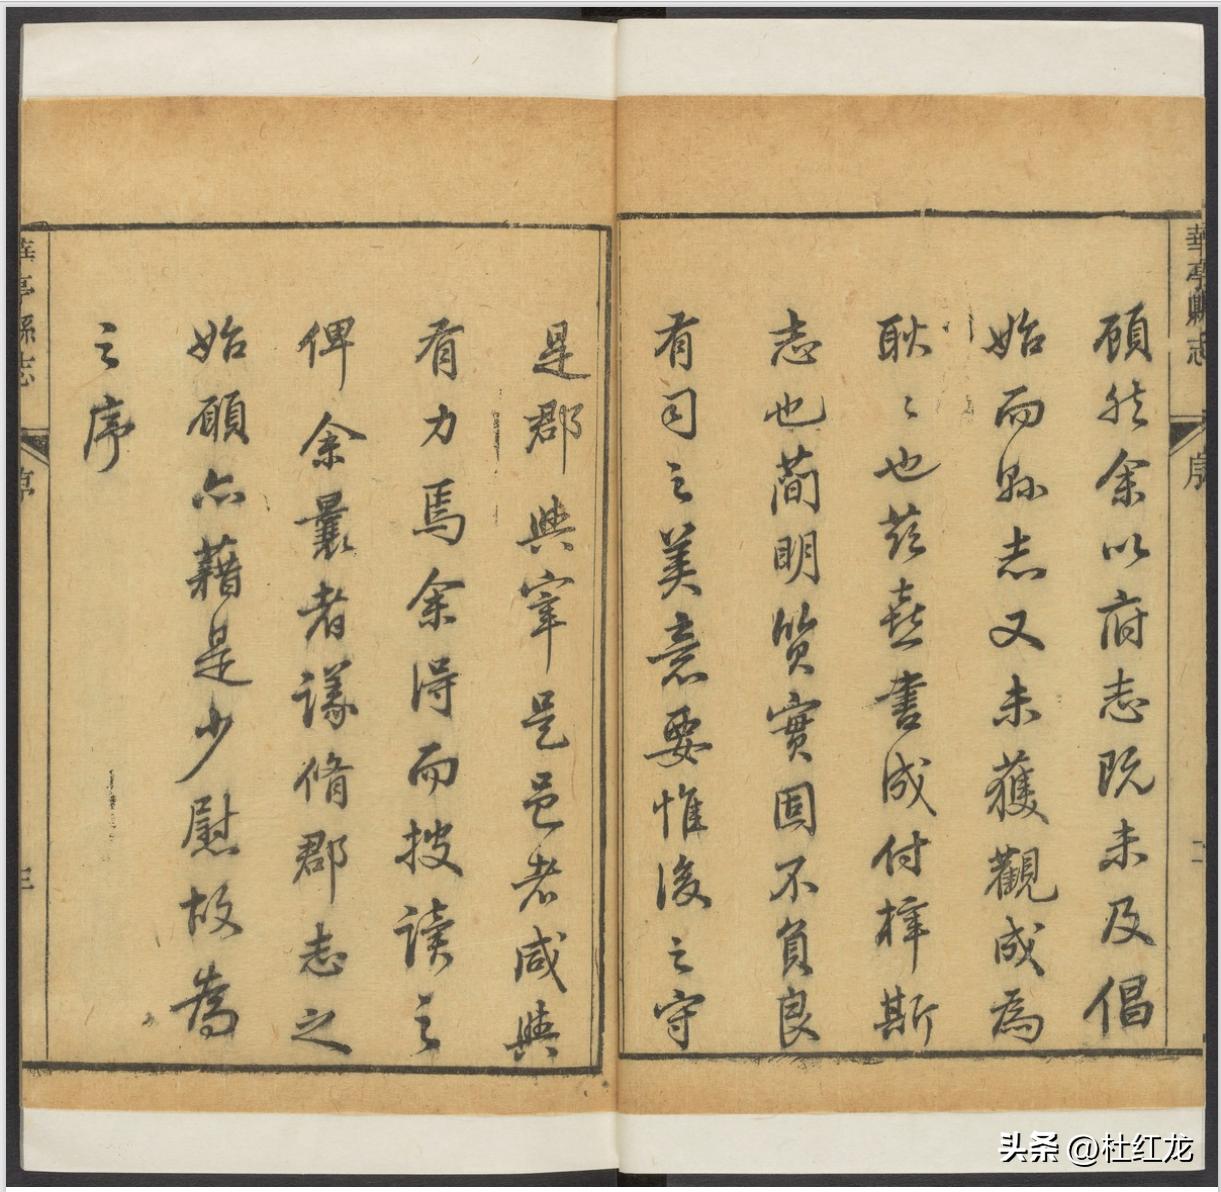 華亭縣志
序
二
顧然余以府志既未及倡
始而縣志又未獲觀成為
耿〻也茲喜書成付梓斯
志也簡明質實固不負良
有司之美意要惟後之守
是郡與宰是邑者咸與
有力焉余得而披读之
俾余曩者議脩郡志之
始願亦藉是少慰故為
之序
華亭縣志
序
三
头条 @杜红龙